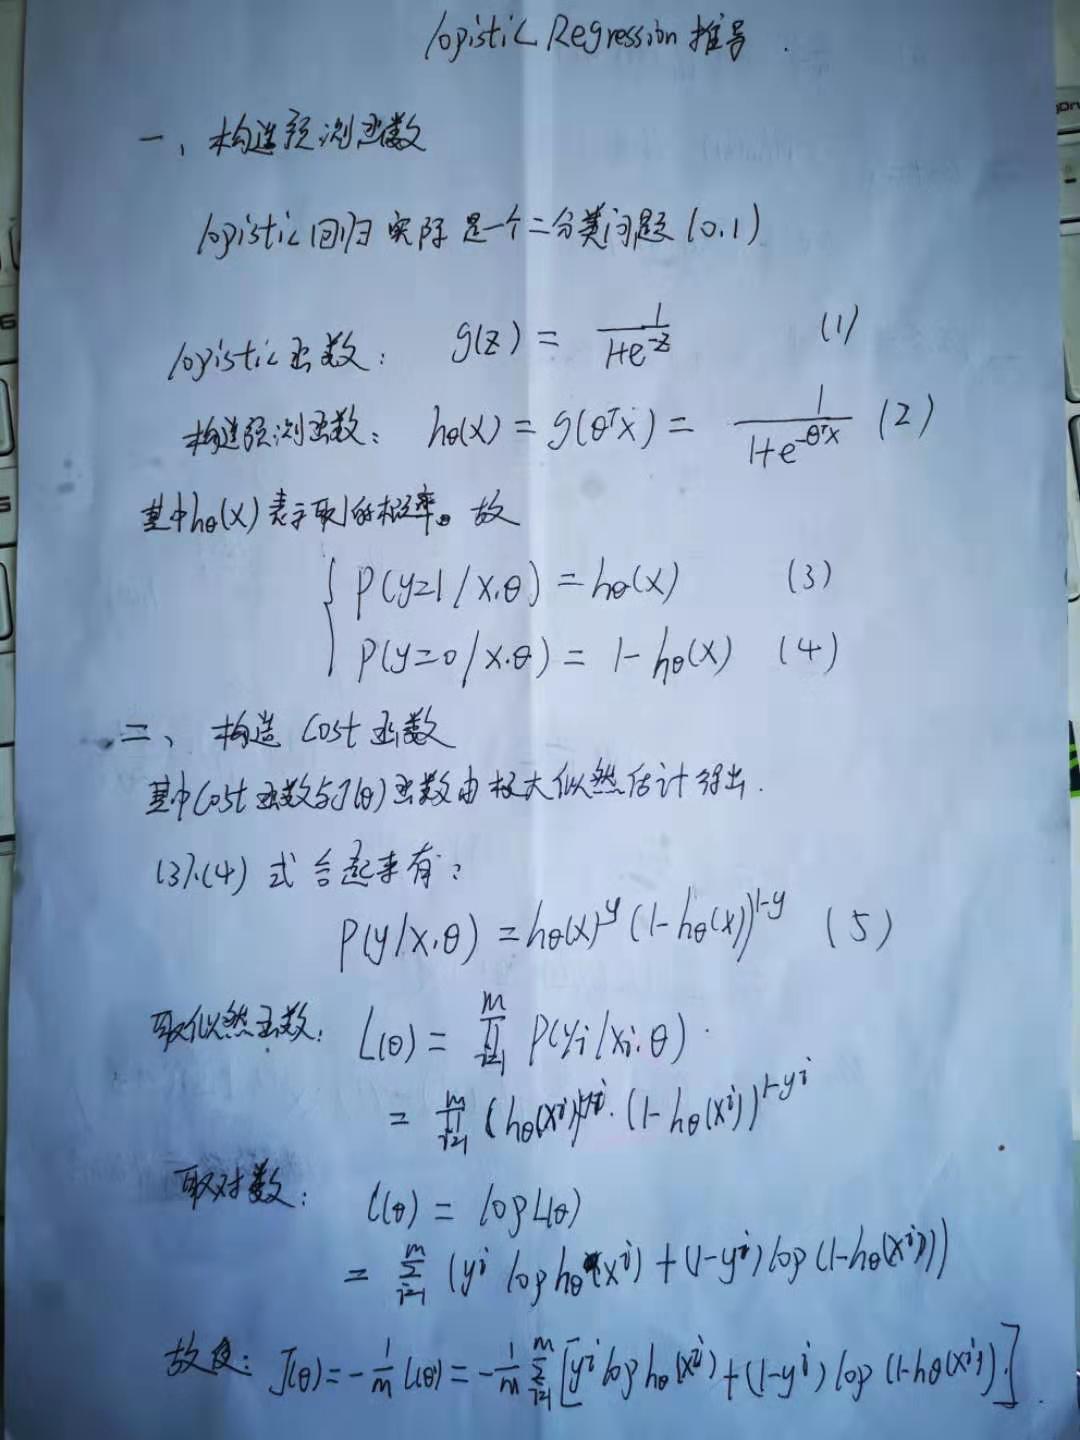 logistic Regression 推导
一、构造预测函数
logistic回归实际是一个二分类问题(0,1)
logistic函数: g(z) = 1/(1+e^-z) (1)
构造预测函数: hθ(x) = g(θᵀx) = 1/(1+e^-θᵀx) (2)
其中hθ(x)表示取1的概率。故
{ P(y=1/x.θ) = hθ(x) (3)
P(y=0/x.θ) = 1-hθ(x) (4)
二、构造 Cost 函数
其中Cost函数与J(θ)函数由极大似然估计得出.
(3).(4) 式合起来有:
P(y/x.θ) = hθ(x)^y (1-hθ(x))^1-y (5)
取似然函数: L(θ) = ∏_{i=1}^{m} P(yi/xi.θ)
= ∏_{i=1}^{m} (hθ(x^i))^y^i · (1-hθ(x^i))^1-y^i
取对数: l(θ) = log L(θ)
= ∑_{i=1}^{m} (y^i log hθ(x^i) + (1-y^i) log (1-hθ(x^i)))
故: J(θ) = -1/m l(θ) = -1/m ∑_{i=1}^{m} [y^i log hθ(x^i) + (1-y^i) log (1-hθ(x^i)).]